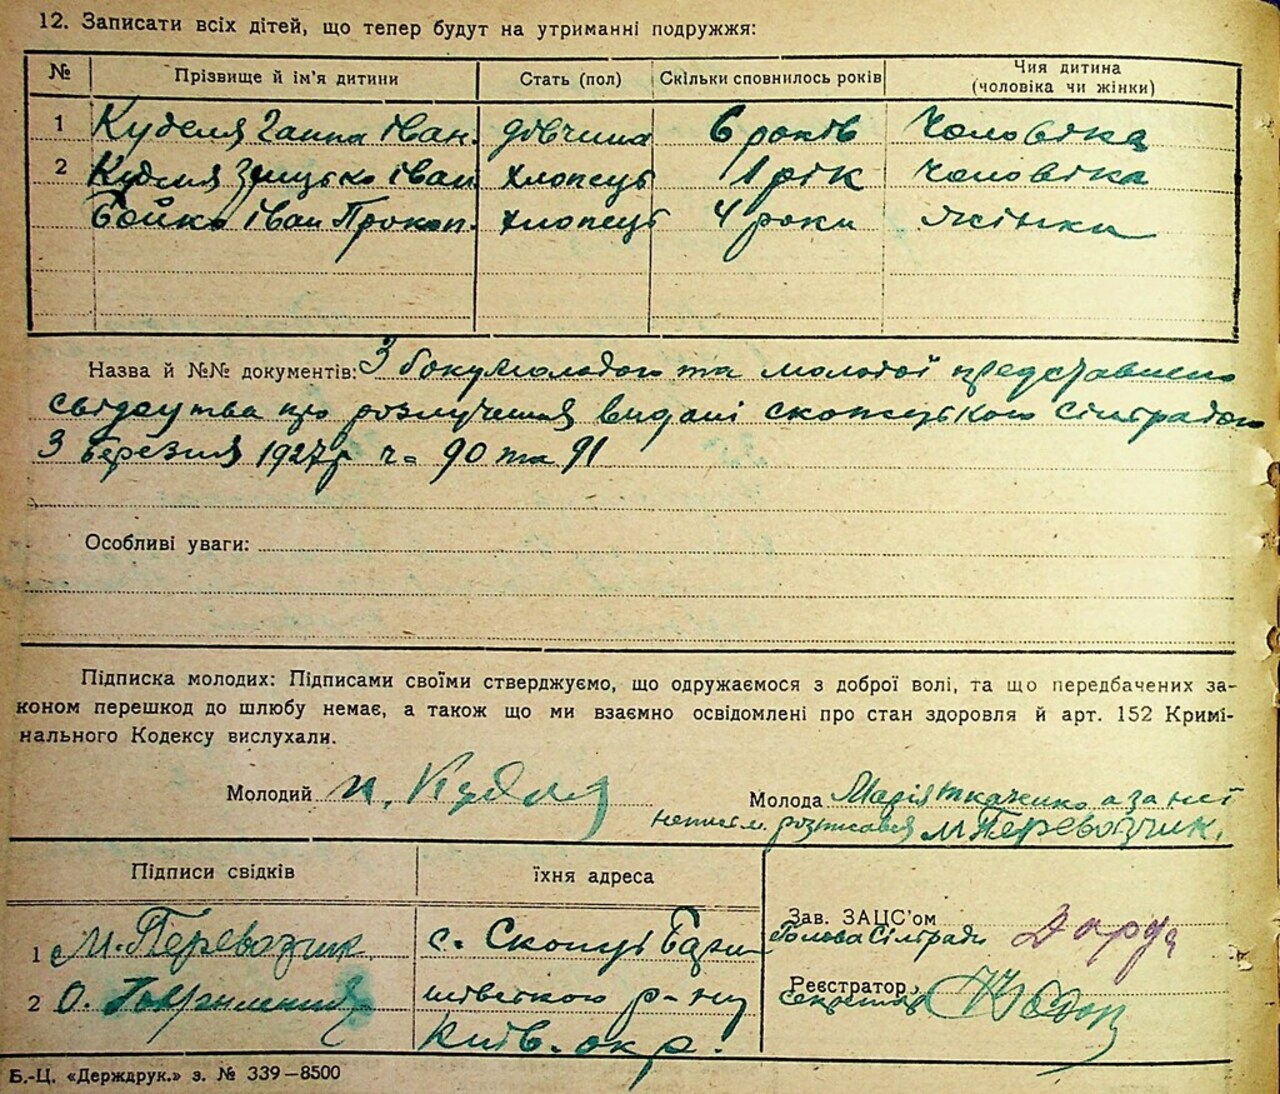 12. Записати всіх дітей, що тепер будут на утриманні подружжя:
№ Прізвище й ім'я дитини Стать (пол) Скільки сповнилось років Чия дитина (чоловіка чи жінки)
1 Куделя Ганна Іван. дівчина 6 років Чоловіка
2 Куделя Грицько Іван хлопець 1 рік Чоловіка
Бойко Іван Прокоп. хлопець 4 роки Жінки
Назва й №№ документів: З боку молодого та молодої представлено
свідоцтва про розлучення видані скопецькою сільрадою
3 березня 1927 р ч= 90 та 91
Особливі уваги:
Підписка молодих: Підписами своїми стверджуємо, що одружаємося з доброї волі, та що передбачених за-
коном перешкод до шлюбу немає, а також що ми взаємно освідомлені про стан здоровля й арт. 152 Кримі-
нального Кодексу вислухали.
Молодий Куделя
Молода Марія Ткаченко а за неї
неписм. розписався М Перевозчик.
Підписи свідків їхня адреса
1 М. Перевозчик
2 О.
с. Скопці Бари-
шівського р-ну
Київ. окр.
Зав. ЗАЦС'ом
Голова Сільради
Реєстратор
секретар
Б.-Ц. «Держдрук.» з. № 339—8500